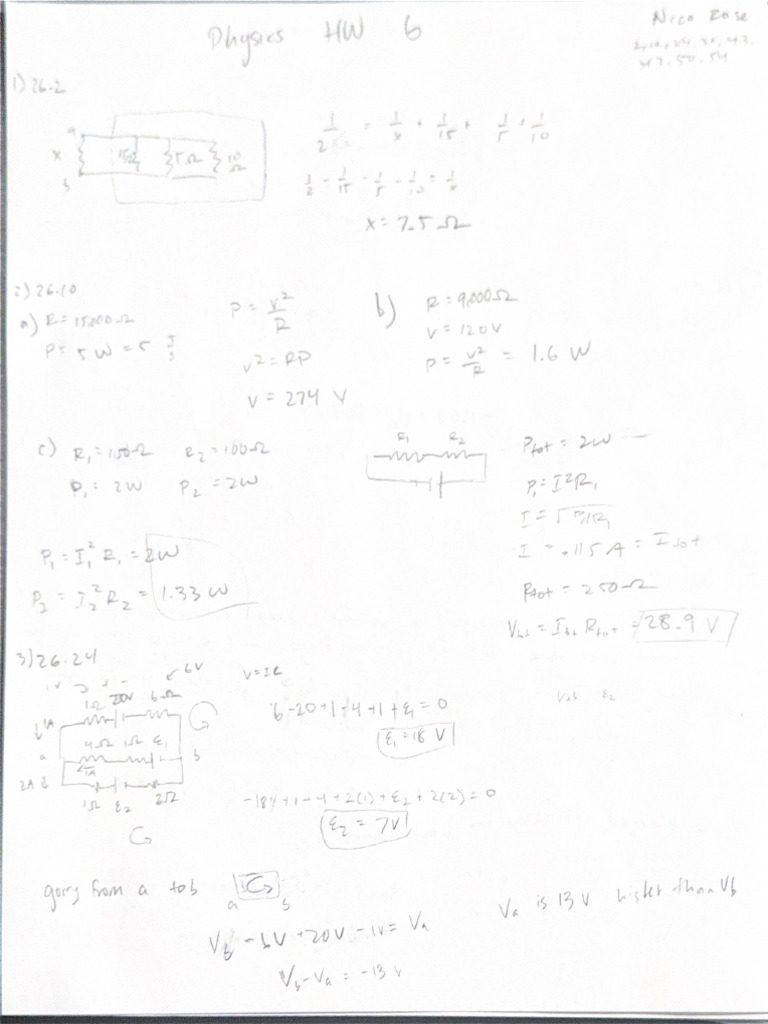 Physics HW 6
Nico Rose
1) 26.2
a
x 15Ω 5Ω 10 Ω
b
1/2 = 1/x + 1/15 + 1/5 + 1/10
1/2 - 1/15 - 1/5 - 1/10 = 1/x
x = 7.5 Ω
2) 26.10
a) R = 15,000 Ω
P = 5 W = 5 J/s
P = V²/R
V² = RP
V = 274 V
b) R = 9,000 Ω
V = 120 V
P = V²/R = 1.6 W
c) R₁ = 100 Ω R₂ = 100 Ω
P₁ = 2W P₂ = 2W
R₁ R₂
Ptot = 2W
P₁ = I²R₁
I = √P₁/R₁
I = .115 A = Itot
Rtot = 250 Ω
Vtot = Itot Rtot = 28.9 V
P₁ = I₁² R₁ = 2W
P₂ = I₂² R₂ = 1.33 W
3) 26.24
6V
1Ω 20V 6Ω
1A
a 4Ω 1Ω ε₁ b
1A
2A
1Ω ε₂ 2Ω
V = IR
6 - 20 + 1 - 4 + 1 + ε₁ = 0
ε₁ = 18 V
-18 + 1 - 4 + 2(1) + ε₂ + 2(2) = 0
ε₂ = 7V
going from a to b
a b
Vb - 6V + 20V - 1V = Va
Vb - Va = -13 V
Va is 13 V higher than Vb